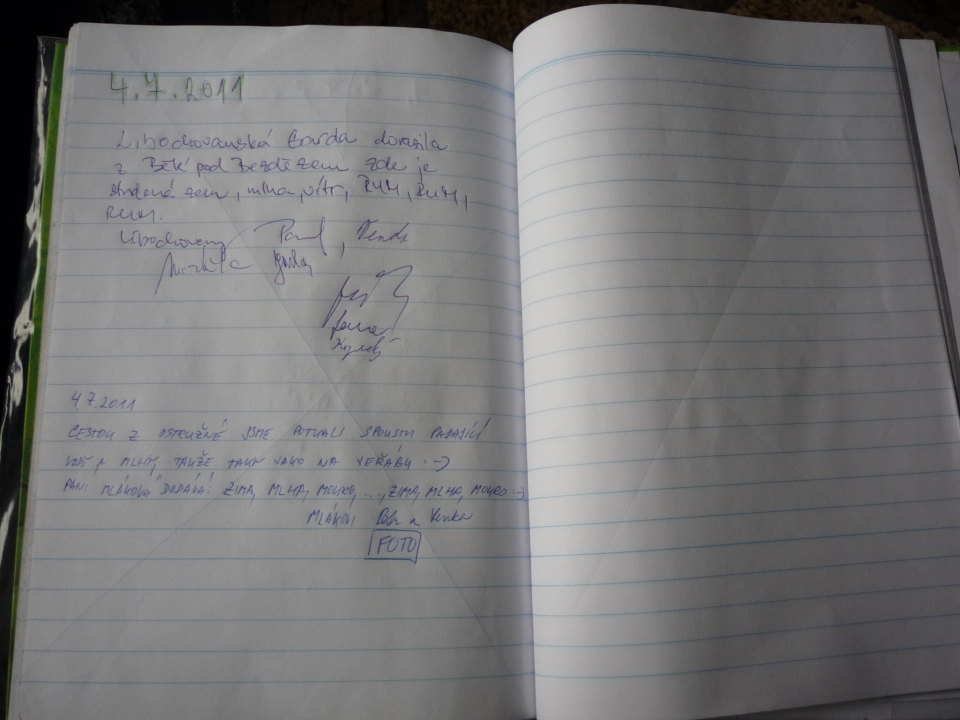 4.7.2011
Libochovanská Garda dorazila
z Bělé pod Bezdězem zde je
studená zem, mlha, vítr, RUM, RUM,
RUM.
Libochovany Pavel, Venda
4.7.2011
CESTOU Z OSTRUŽNÉ JSME POTKALI SPOUSTU PADAJÍCÍ
VODY A MLHY, TAKŽE TADY JAKO NA VEŘÁBU :-)
PANÍ MLÁKOVÁ DODÁVÁ: ZIMA, MLHA, MOKRO, ..., ZIMA, MLHA, MOKRO :-)
MLÁKOVI Petr a Lenka
FOTO